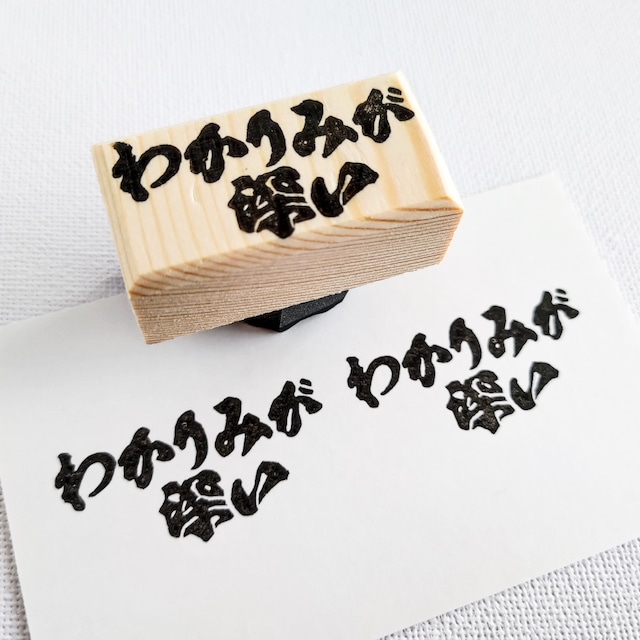 わかりみが
深い
わかりみが
深い
わかりみが
深い